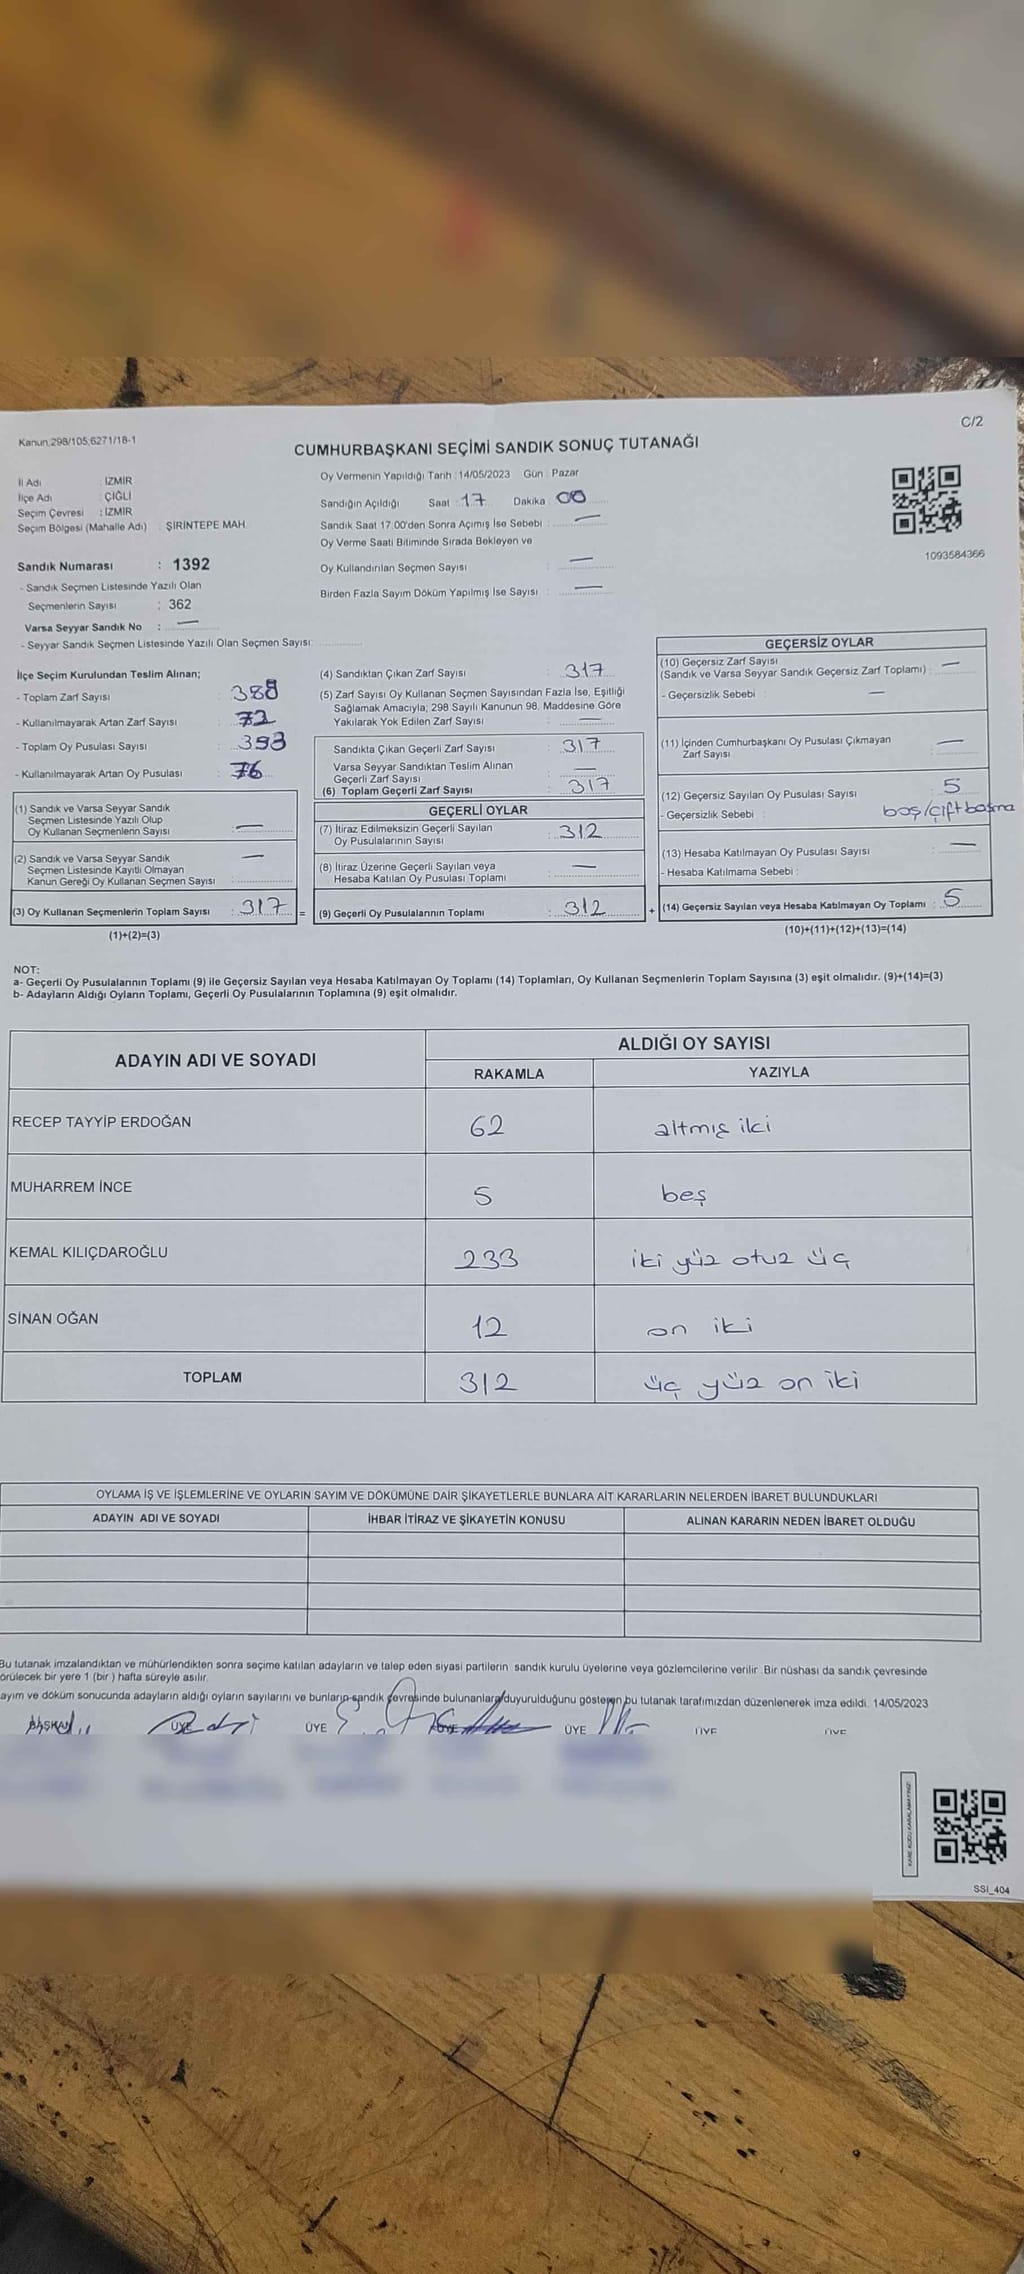 C/2
Kanun 298/105,6271/18-1
CUMHURBAŞKANI SEÇİMİ SANDIK SONUÇ TUTANAĞI
İl Adı : İZMİR
İlçe Adı : ÇİĞLİ
Seçim Çevresi : İZMİR
Seçim Bölgesi (Mahalle Adı) : ŞİRİNTEPE MAH.
Oy Vermenin Yapıldığı Tarih : 14/05/2023 Gün : Pazar
Sandığın Açıldığı Saat : 17 Dakika : 00
Sandık Saat 17.00'den Sonra Açımış İse Sebebi : —
Oy Verme Saati Bitiminde Sırada Bekleyen ve
Oy Kullandırılan Seçmen Sayısı : —
Birden Fazla Sayım Döküm Yapılmış İse Sayısı : —
1093584366
Sandık Numarası : 1392
- Sandık Seçmen Listesinde Yazılı Olan
Seçmenlerin Sayısı : 362
Varsa Seyyar Sandık No : —
- Seyyar Sandık Seçmen Listesinde Yazılı Olan Seçmen Sayısı:
İlçe Seçim Kurulundan Teslim Alınan;
- Toplam Zarf Sayısı :
- Kullanılmayarak Artan Zarf Sayısı :
- Toplam Oy Pusulası Sayısı : 393
- Kullanılmayarak Artan Oy Pusulası : 76
(1) Sandık ve Varsa Seyyar Sandık
Seçmen Listesinde Yazılı Olup
Oy Kullanan Seçmenlerin Sayısı : —
(2) Sandık ve Varsa Seyyar Sandık
Seçmen Listesinde Kayıtlı Olmayan
Kanun Gereği Oy Kullanan Seçmen Sayısı : —
(3) Oy Kullanan Seçmenlerin Toplam Sayısı : 317 =
(1)+(2)=(3)
(4) Sandıktan Çıkan Zarf Sayısı : 317
(5) Zarf Sayısı Oy Kullanan Seçmen Sayısından Fazla İse, Eşitliği
Sağlamak Amacıyla; 298 Sayılı Kanunun 98. Maddesine Göre
Yakılarak Yok Edilen Zarf Sayısı : —
Sandıkta Çıkan Geçerli Zarf Sayısı : 317
Varsa Seyyar Sandıktan Teslim Alınan
Geçerli Zarf Sayısı : —
(6) Toplam Geçerli Zarf Sayısı : 317
GEÇERLİ OYLAR
(7) İtiraz Edilmeksizin Geçerli Sayılan
Oy Pusulalarının Sayısı : 312
(8) İtiraz Üzerine Geçerli Sayılan veya
Hesaba Katılan Oy Pusulası Toplamı : —
(9) Geçerli Oy Pusulalarının Toplamı : 312 +
GEÇERSİZ OYLAR
(10) Geçersiz Zarf Sayısı
(Sandık ve Varsa Seyyar Sandık Geçersiz Zarf Toplamı) : —
- Geçersizlik Sebebi : —
(11) İçinden Cumhurbaşkanı Oy Pusulası Çıkmayan
Zarf Sayısı : —
(12) Geçersiz Sayılan Oy Pusulası Sayısı : 5
- Geçersizlik Sebebi : boş/çift basma
(13) Hesaba Katılmayan Oy Pusulası Sayısı : —
- Hesaba Katılmama Sebebi :
(14) Geçersiz Sayılan veya Hesaba Katılmayan Oy Toplamı : 5
(10)+(11)+(12)+(13)=(14)
NOT:
a- Geçerli Oy Pusulalarının Toplamı (9) ile Geçersiz Sayılan veya Hesaba Katılmayan Oy Toplamı (14) Toplamları, Oy Kullanan Seçmenlerin Toplam Sayısına (3) eşit olmalıdır. (9)+(14)=(3)
b- Adayların Aldığı Oyların Toplamı, Geçerli Oy Pusulalarının Toplamına (9) eşit olmalıdır.
ADAYIN ADI VE SOYADI ALDIĞI OY SAYISI
RAKAMLA YAZIYLA
RECEP TAYYİP ERDOĞAN 62 altmış iki
MUHARREM İNCE 5 beş
KEMAL KILIÇDAROĞLU 233 iki yüz otuz üç
SİNAN OĞAN 12 on iki
TOPLAM 312 üç yüz on iki
OYLAMA İŞ VE İŞLEMLERİNE VE OYLARIN SAYIM VE DÖKÜMÜNE DAİR ŞİKAYETLERLE BUNLARA AİT KARARLARIN NELERDEN İBARET BULUNDUKLARI
ADAYIN ADI VE SOYADI İHBAR İTİRAZ VE ŞİKAYETİN KONUSU ALINAN KARARIN NEDEN İBARET OLDUĞU
Bu tutanak imzalandıktan ve mühürlendikten sonra seçime katılan adayların ve talep eden siyasi partilerin sandık kurulu üyelerine veya gözlemcilerine verilir. Bir nüshası da sandık çevresinde
örülecek bir yere 1 (bir ) hafta süreyle asılır.
ayım ve döküm sonucunda adayların aldığı oyların sayılarını ve bunların sandık çevresinde bulunanlara duyurulduğunu gösteren bu tutanak tarafımızdan düzenlenerek imza edildi. 14/05/2023
BAŞKAN ÜYE ÜYE ÜYE ÜYE ÜYE ÜYE
SSİ_404